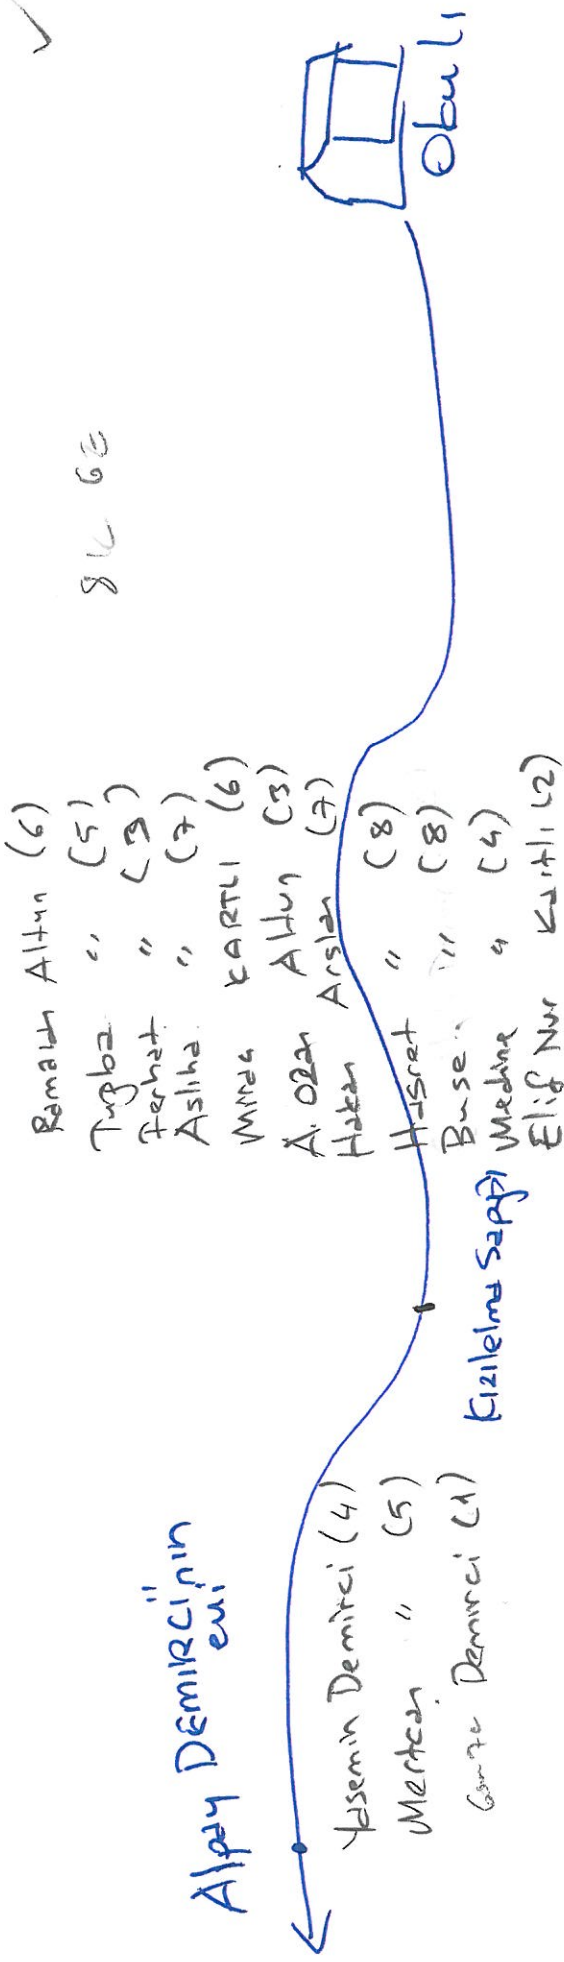 Alpay DEMİRCİ'nin
evi
Yasemin Demirci (4)
Mertcan " (5)
Demirci (1)
Kızılelma Sapağı
Ramazan Altun (6)
Tuğba " (5)
Ferhat " (3)
Aslıha " (7)
Miraç KARTLI (6)
A. Ozan Altun (3)
Hakan Arslan (7)
Hasret " (8)
Buse " (8)
Medine " (4)
Elif Nur Kartlı (2)
8K 6E